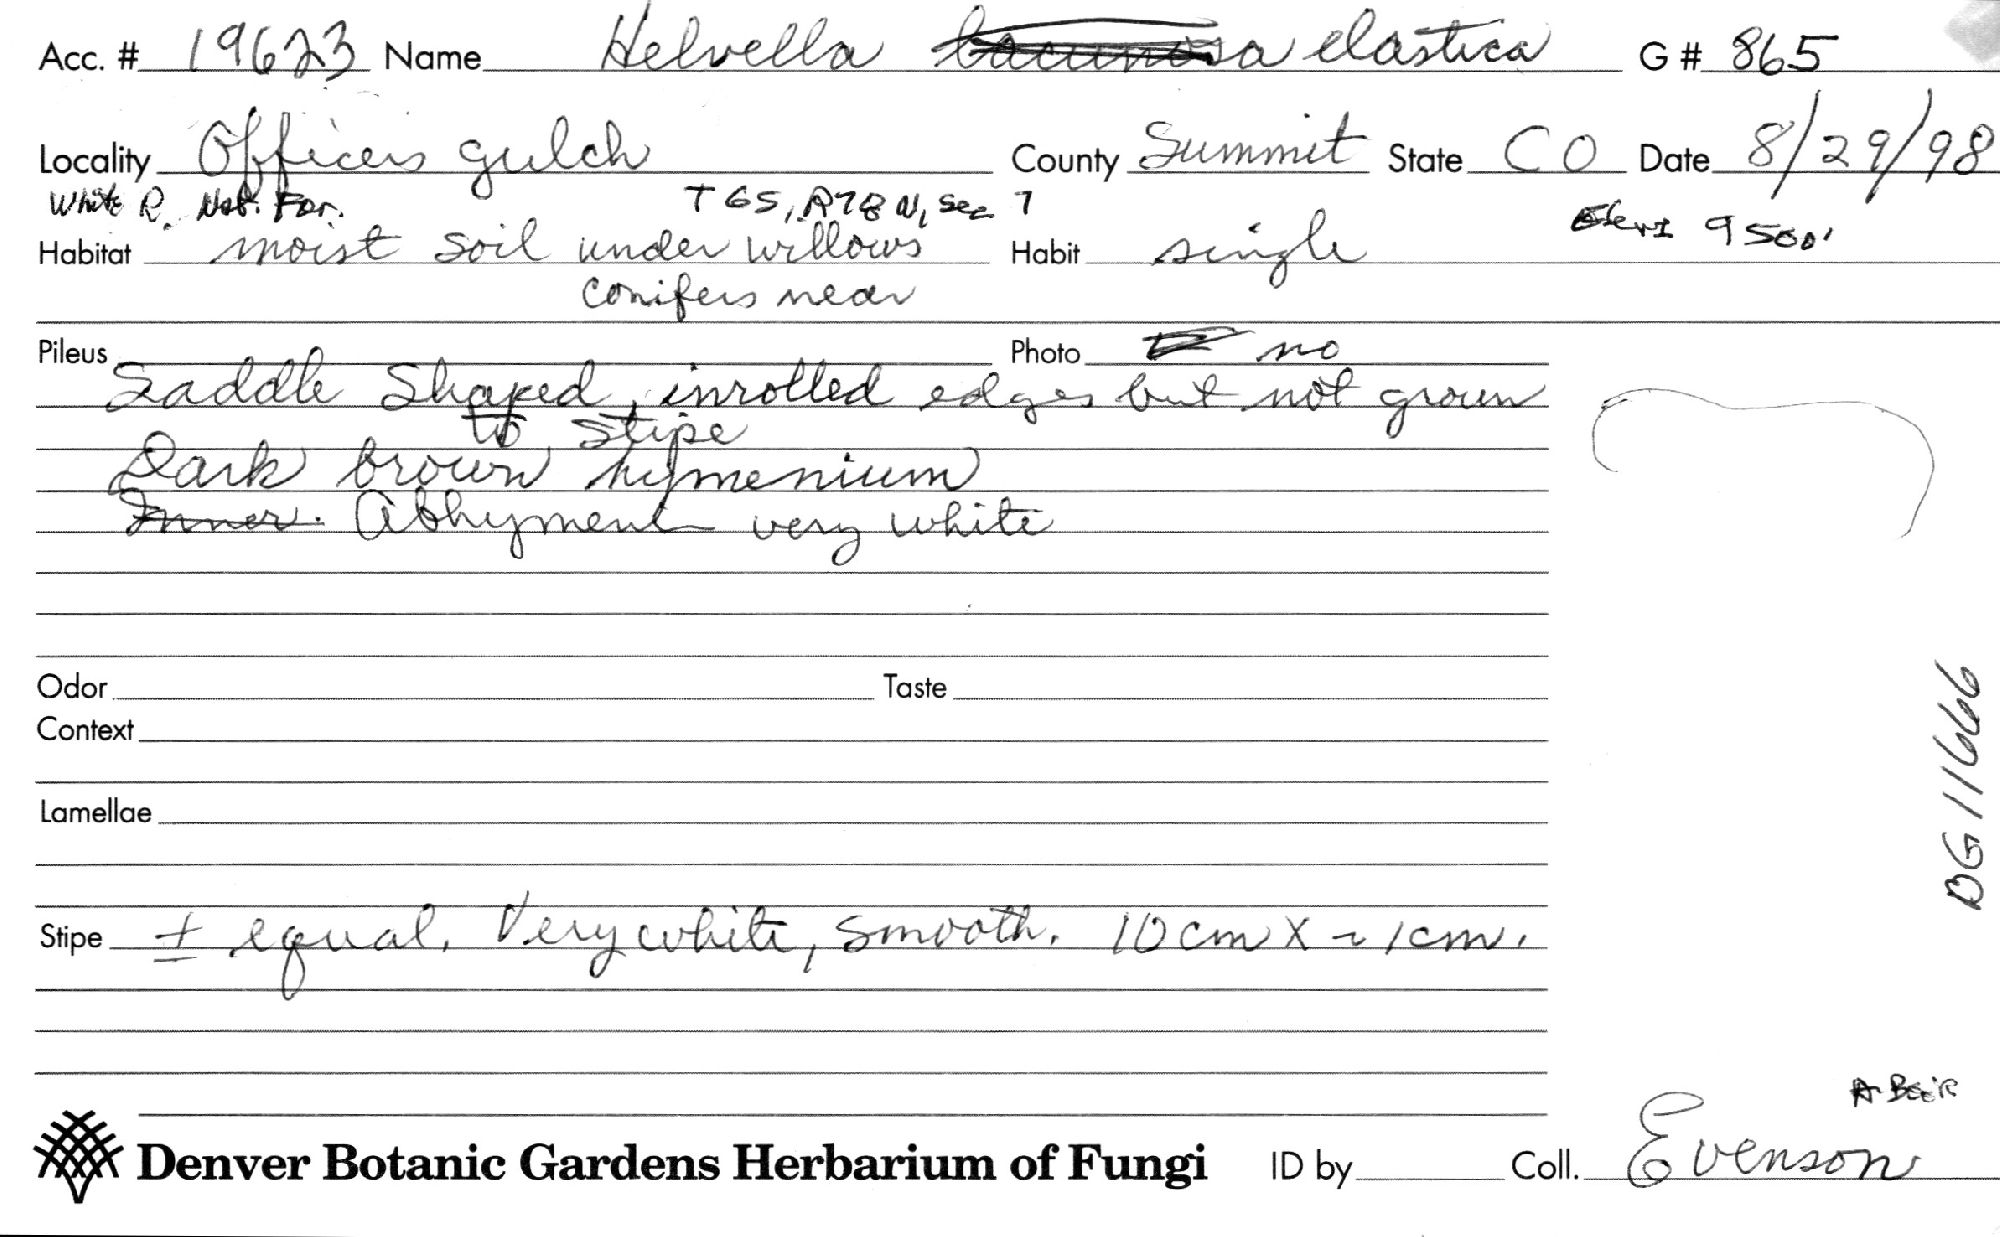 Acc. # 19623 Name Helvella lacunosa elastica G # 865
Locality Officers gulch County Summit State CO Date 8/29/98
White R. Nat. For. T 6S, R78 W, Sec 7
Elev. 9500'
Habitat moist soil under willows Habit single
conifers near
Pileus Photo no
Saddle Shaped, inrolled edges but not grown
to stipe
Dark brown hymenium
Inner. Abhymenl very white
Odor Taste
Context
Lamellae
Stipe ± equal. Very white, smooth. 10 cm X ~ 1 cm.
DG 11666
Denver Botanic Gardens Herbarium of Fungi ID by Coll. Evenson